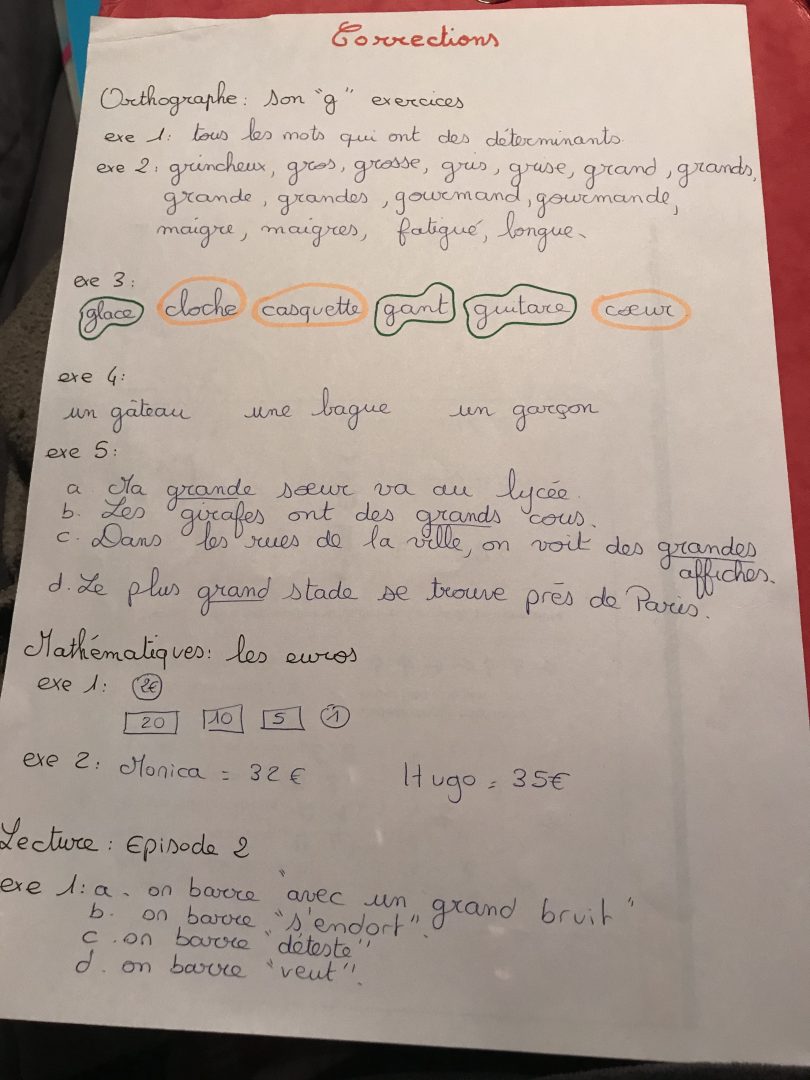 Corrections
Orthographe : son "g" exercices
exe 1 : tous les mots qui ont des déterminants.
exe 2 : grincheux, gros, grosse, gris, grise, grand, grands,
grande, grandes, gourmand, gourmande,
maigre, maigres, fatigué, longue.
exe 3 :
glace cloche casquette gant guitare cœur
exe 4 :
un gâteau une bague un garçon
exe 5 :
a. Ma grande sœur va au lycée.
b. Les girafes ont des grands cous.
c. Dans les rues de la ville, on voit des grandes
affiches.
d. Le plus grand stade se trouve prés de Paris.
Mathématiques : les euros
exe 1 : 2€
20 10 5 1
exe 2 : Monica = 32 € Hugo = 35€
Lecture : Episode 2
exe 1 : a. on barre "avec un grand bruit"
b. on barre "s'endort".
c. on barre "déteste"
d. on barre "veut".